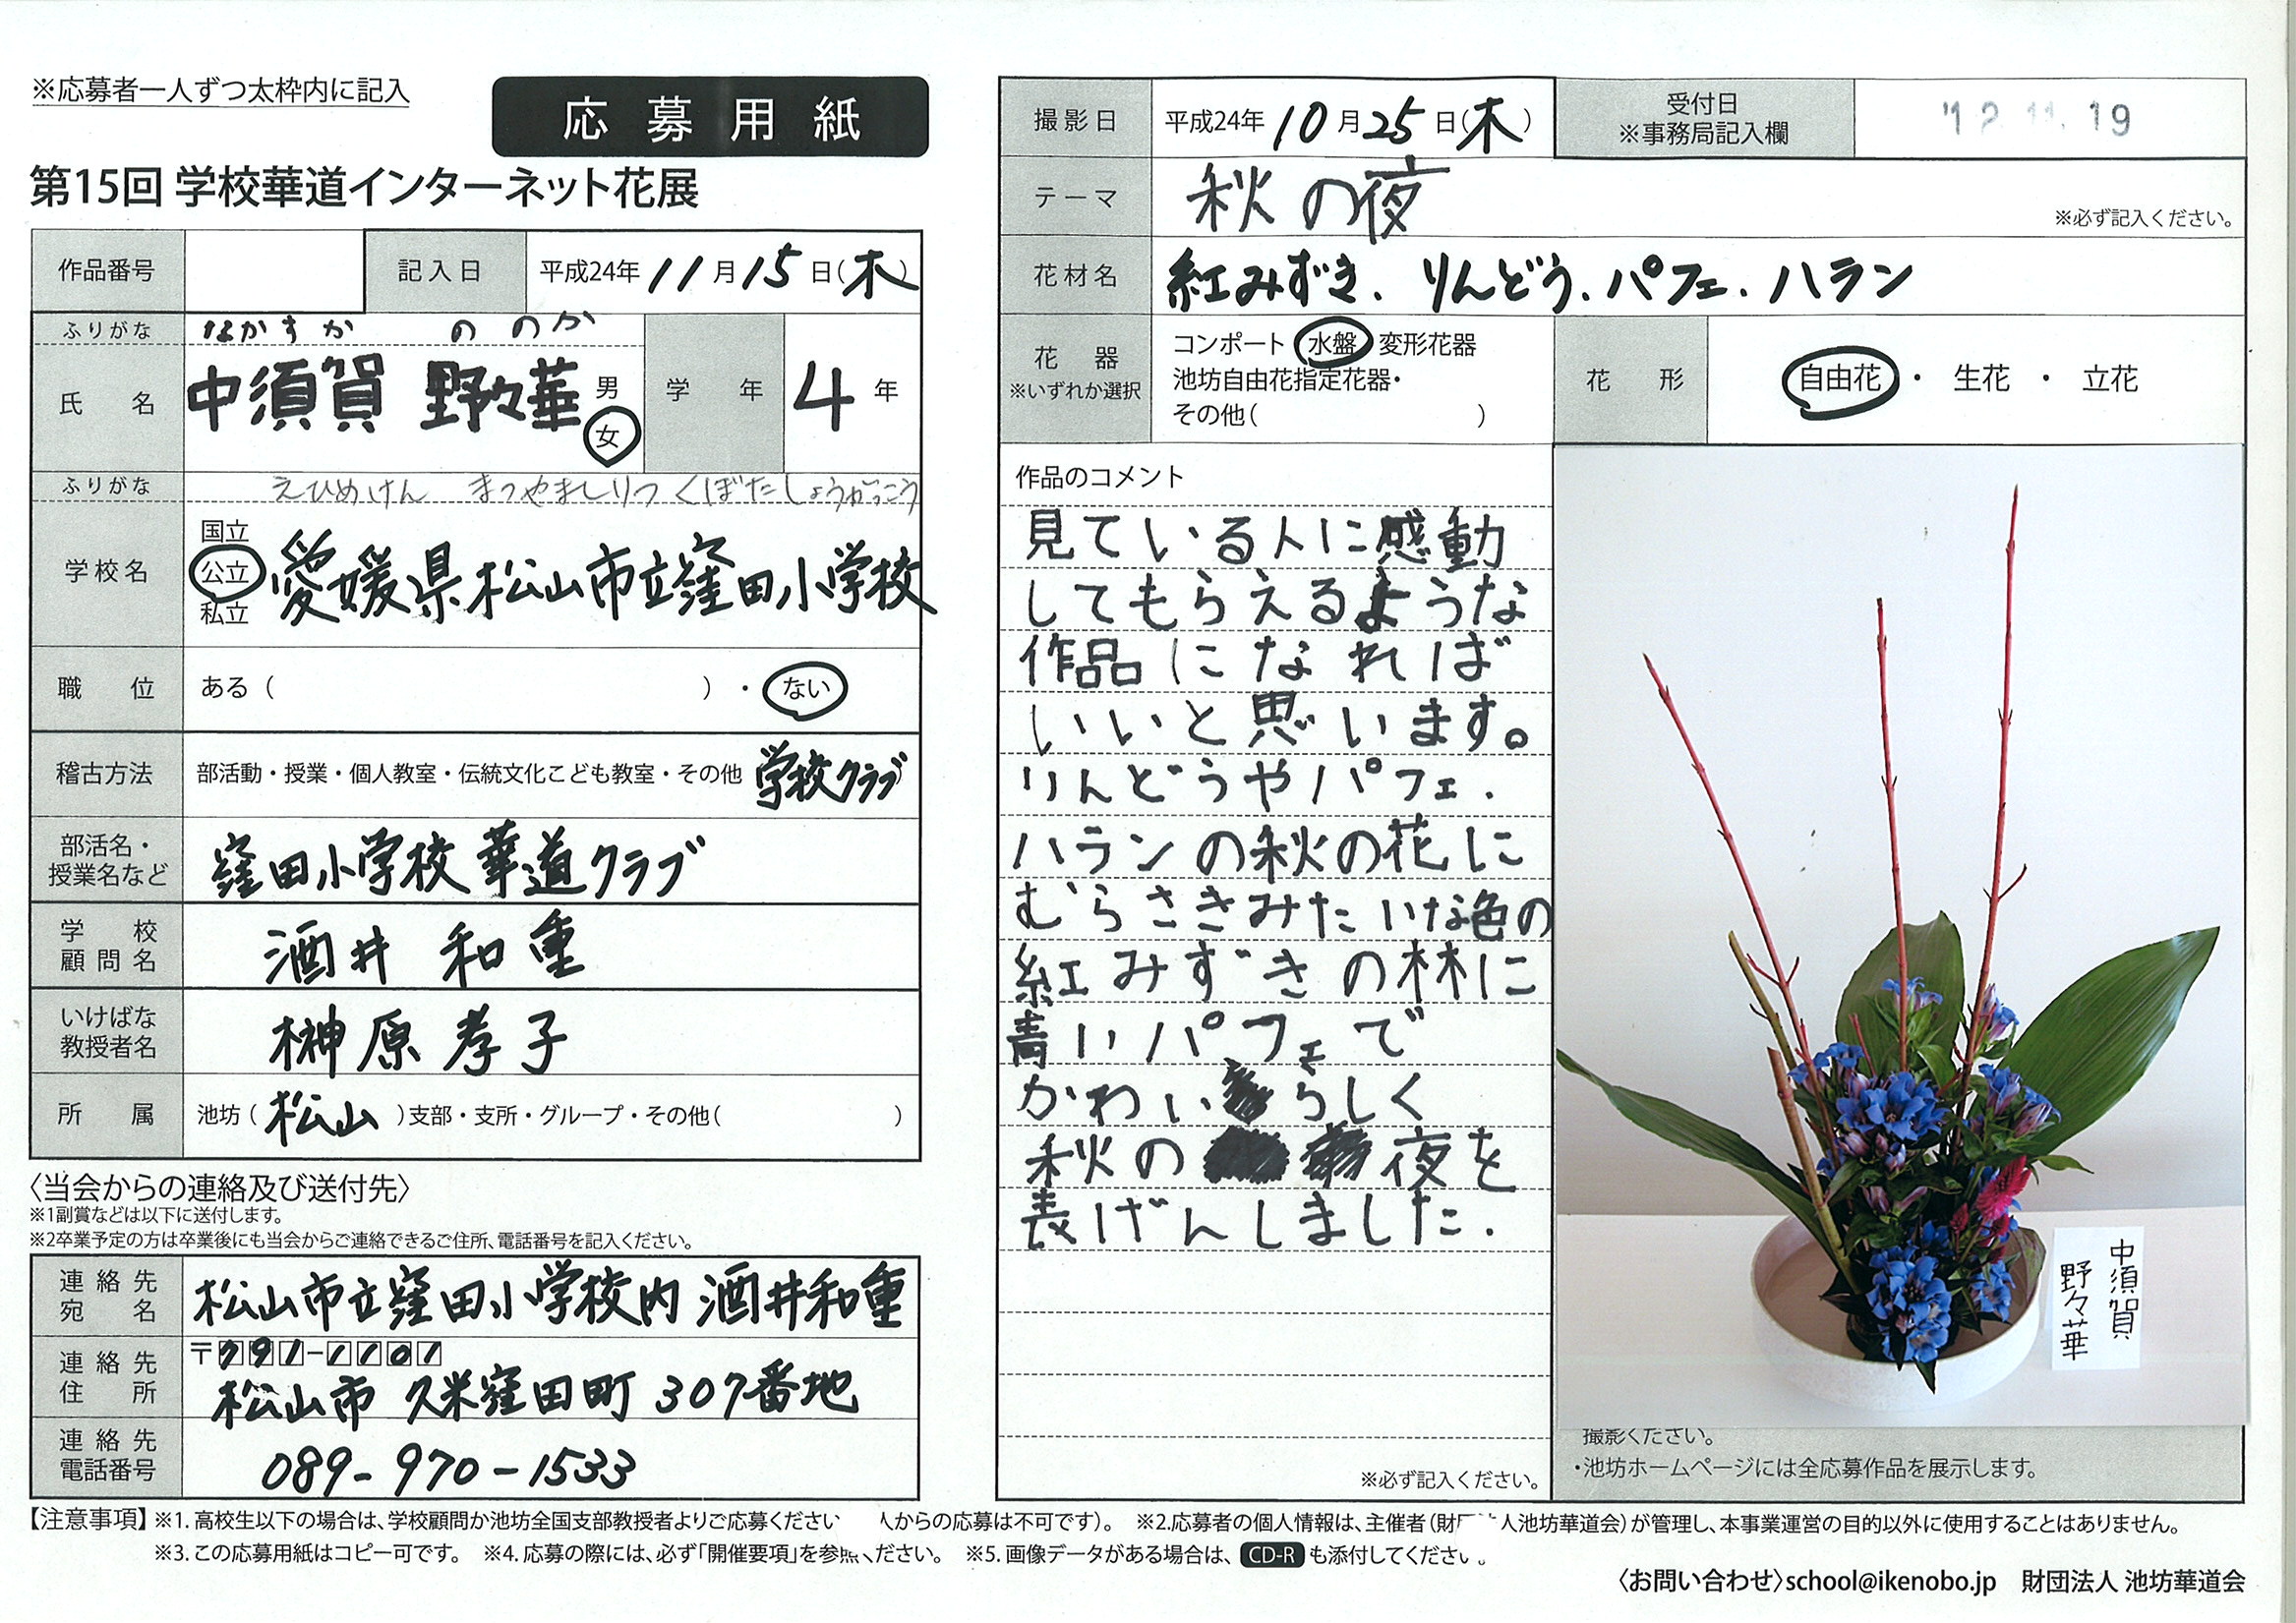 ※応募者一人ずつ太枠内に記入
応募用紙
第15回 学校華道インターネット花展
作品番号
記入日 平成24年 11月15日(木)
ふりがな なかすか ののか
氏名 中須賀 野々華 男 女
学年 4年
ふりがな えひめけん まつやましりつ くぼたしょうがっこう
学校名 国立 公立 私立 愛媛県松山市立窪田小学校
職位 ある( )・ない
稽古方法 部活動・授業・個人教室・伝統文化こども教室・その他 学校クラブ
部活名・授業名など 窪田小学校華道クラブ
学校顧問名 酒井 和重
いけばな教授者名 榊原孝子
所属 池坊(松山)支部・支所・グループ・その他( )
〈当会からの連絡及び送付先〉
※1副賞などは以下に送付します。
※2卒業予定の方は卒業後にも当会からご連絡できるご住所、電話番号を記入ください。
連絡先宛名 松山市立窪田小学校内 酒井和重
連絡先住所 〒791-1101
松山市 久米窪田町 307番地
連絡先電話番号 089-970-1533
撮影日 平成24年 10月25日(木)
受付日 ※事務局記入欄 '12.11.19
テーマ 秋の夜 ※必ず記入ください。
花材名 紅みずき.りんどう.パフェ.ハラン
花器 ※いずれか選択 コンポート 水盤 変形花器
池坊自由花指定花器・
その他( )
花形 自由花・生花・立花
作品のコメント
見ている人に感動
してもらえるような
作品になれば
いいと思います。
りんどうやパフェ.
ハランの秋の花に
むらさきみたいな色の
紅みずきの林に
青いパフェで
かわいらしく
秋の夜を
表げんしました.
※必ず記入ください。
中須賀
野々華
撮影ください。
・池坊ホームページには全応募作品を展示します。
【注意事項】※1. 高校生以下の場合は、学校顧問か池坊全国支部教授者よりご応募ください 人からの応募は不可です)。 ※2.応募者の個人情報は、主催者(財団 人池坊華道会)が管理し、本事業運営の目的以外に使用することはありません。
※3. この応募用紙はコピー可です。 ※4. 応募の際には、必ず「開催要項」を参照ください。 ※5. 画像データがある場合は、CD-Rも添付してください。
〈お問い合わせ〉school@ikenobo.jp 財団法人 池坊華道会